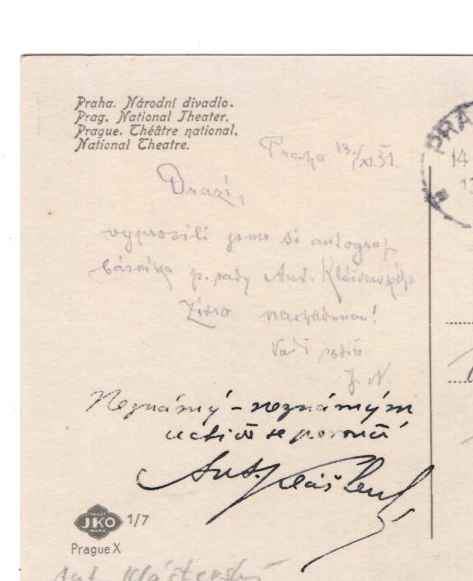 Praha. Národní divadlo.
Prag. National Theater.
Prague. Théâtre national.
National Theatre.
Praha 13./XI.31
Drazí,
vyprosili jsme si autograf
básníka p. rady Ant. Klášterského
nashledanou!
Vaši
J. N.
Neznámý – neznámým
uctivě se poroučí
Ant. Klášterský
PRA
14
JKO
1/7
Prague X
Ant. Klášterský